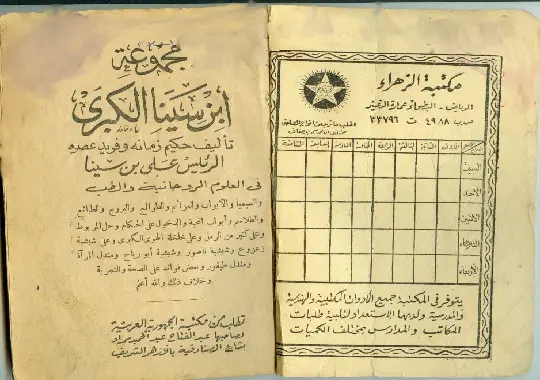 مجموعة
ابن سينا الكبرى
تأليف حكيم زمانه وفريد عصره
الرئيس على بن سينا
فى العلوم الروحانية والطب
والسيميا والأبواب والعزائم والطوالع والبروج والطبائع
والطلاسم وأبواب المحبة والدخول على الحكام وحل المربوط
وعلى كثير من الرمل وعلى خلخلة الهوى الكبرى وعلى شبشبة
ناصور وشبشبة أبو رياح ومندل المرآة
ومندل طيفور وبعض فوائد على الصحة والتجربة
وخلاف ذلك والله أعلم
تطلب من مكتبة الجمهورية العربية
لصاحبها عبد الفتاح عبد الحميد مراد
بشارع الصنادقية بالأزهر الشريف
مكتبة الزهراء
الرياض - البطحاء عمارة
ص.ب ٤٩١٨ ت ٣٣٧٩٦
الأولى الثانية الثالثة الرابعة الخامسة السادسة السابعة الثامنة
السبت
الأحد
الاثنين
الثلاثاء
الأربعاء
يتوفر فى المكتبة جميع الأدوات المكتبية والهندسية
والمدرسية ولديها الاستعداد لتلبية طلبات
المكاتب والمدارس بمختلف الكميات